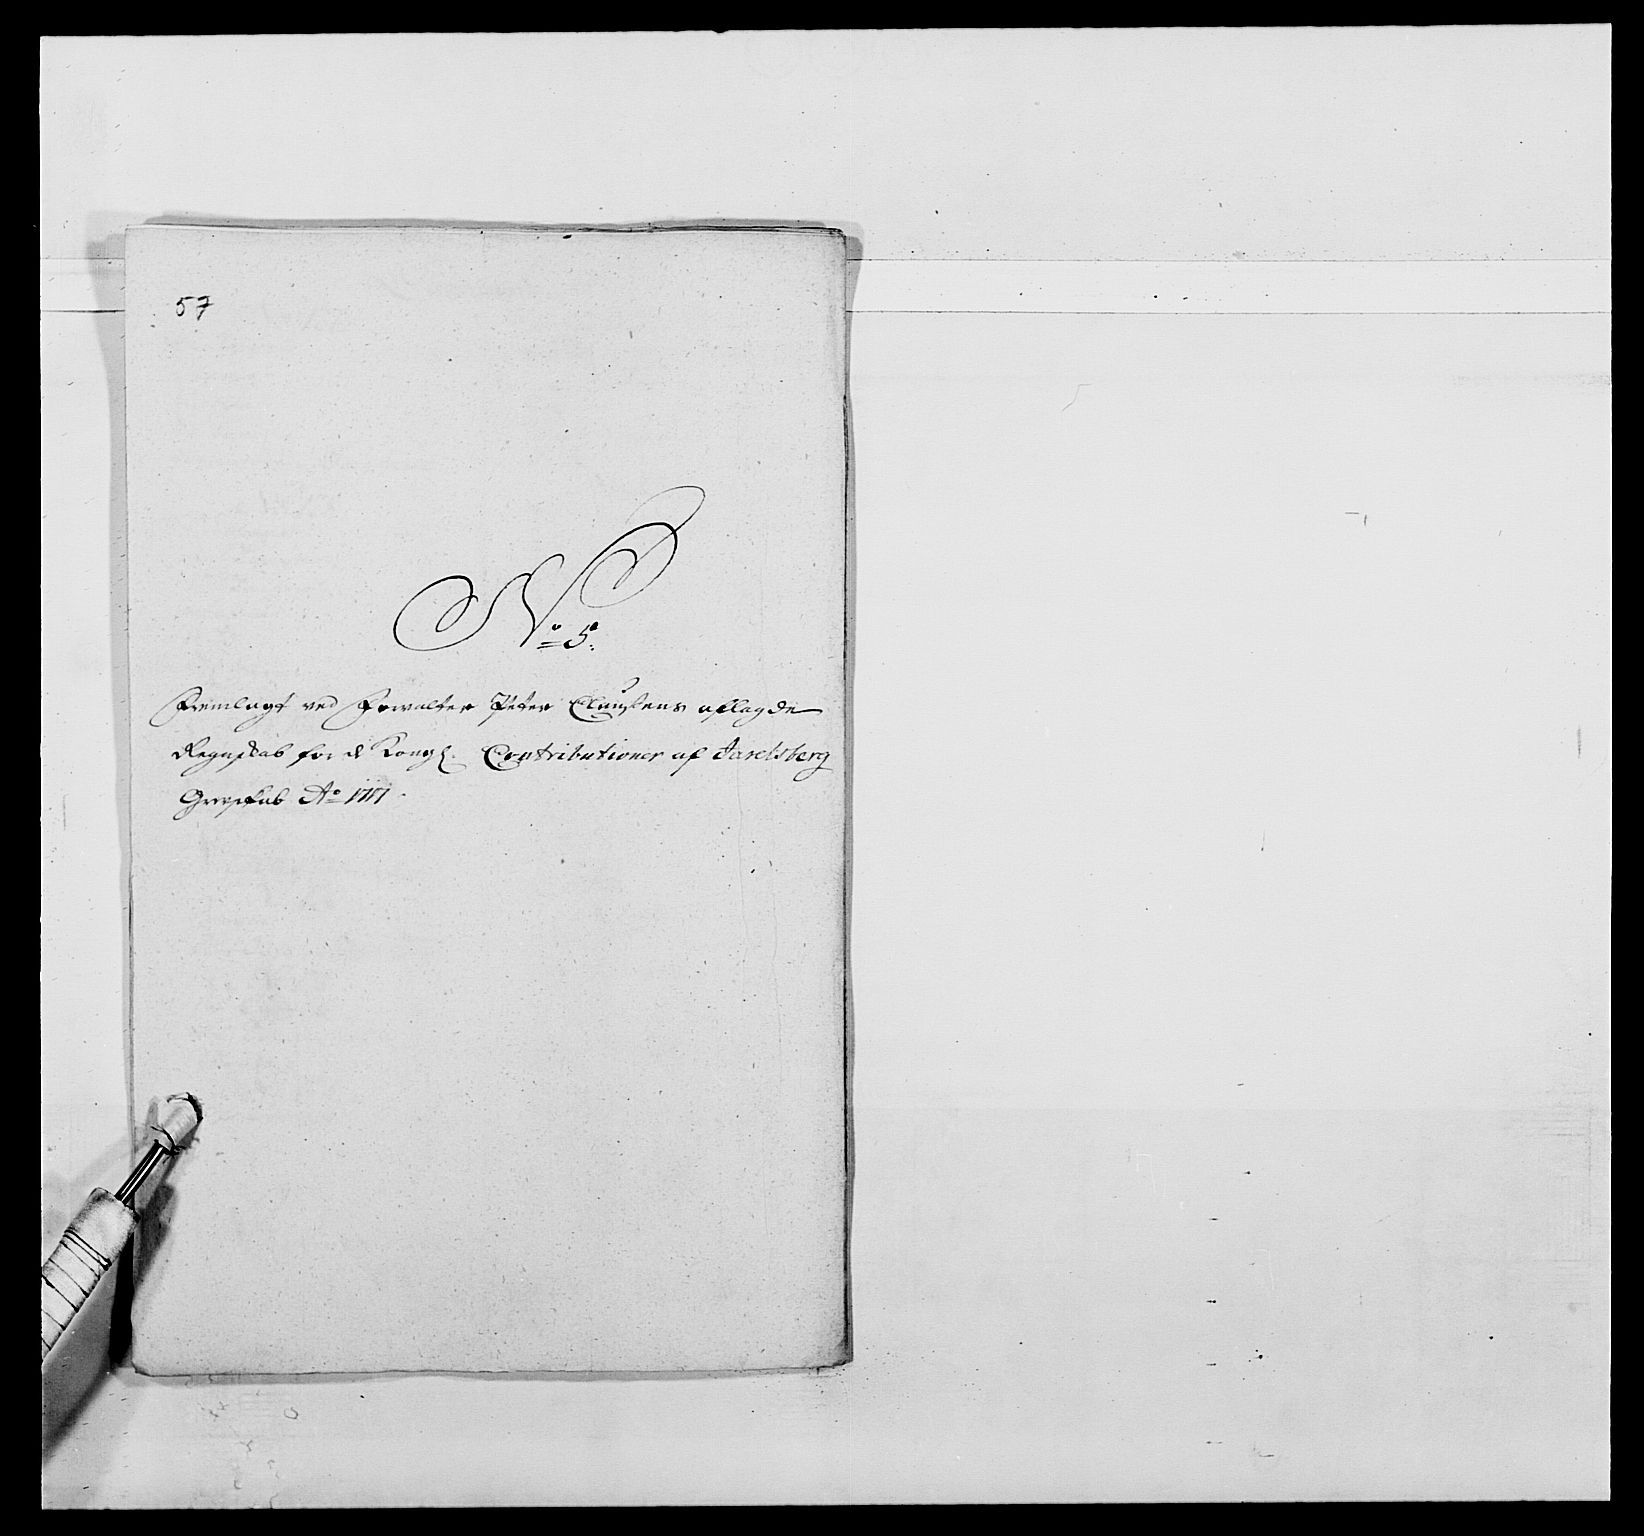 57
No 5:
Fremlagt ved Forwalter Peter Claussens aflagde
Regnskab for de Kongl. Contributioner af Jarelsberg
Grefskab Ao 1717